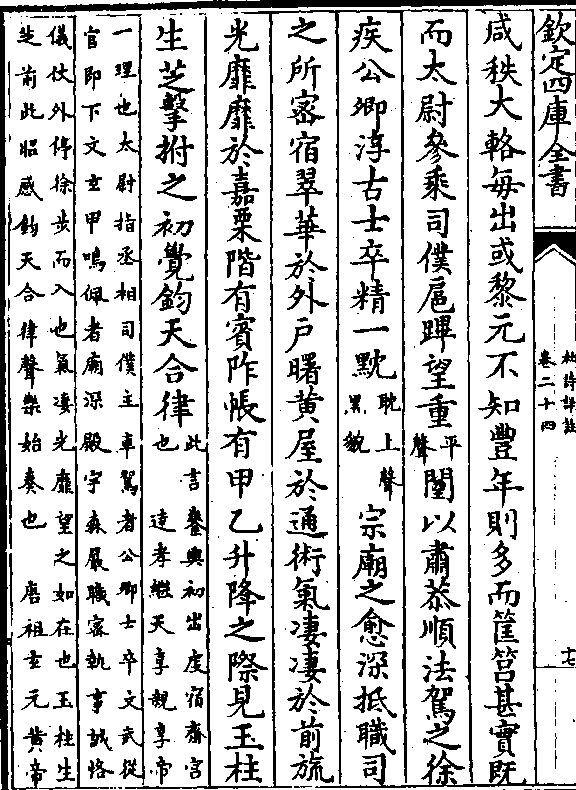 欽定四庫全書
杜詩詳註
卷二十四
十七
咸秩大輅每出或黎元不知豐年則多而筐筥甚實既
而太尉參乘司僕扈蹕望重平聲闉以肅恭順法駕之徐
疾公卿淳古士卒精一黕耽上聲黑貌宗廟之愈深抵職司
之所密宿翠華於外戶曙黄屋於通術氣凄凄於前旒
光靡靡於嘉栗階有賓阼帳有甲乙升降之際見玉柱
生芝擊拊之初覺鈞天合律此言鑾輿初出虔宿齋宫也 達孝繼天享親享帝
一理也太尉指丞相司僕主車駕者公卿士卒文武從
官即下文玄甲鳴佩者廟深殿宇森嚴職密執事誠恪
儀仗外停徐步而入也氣凄光靡望之如在也玉柱生
芝前此昭感鈞天合律聲樂始奏也 唐祖玄元黄帝